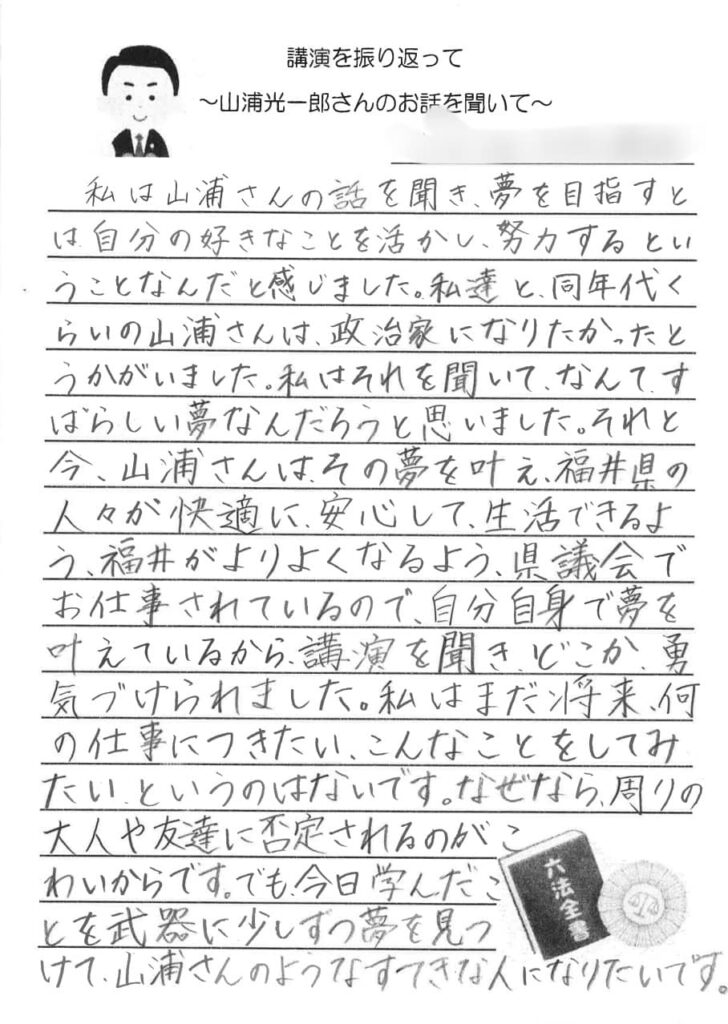 講演を振り返って
～山浦光一郎さんのお話を聞いて～
私は山浦さんの話を聞き、夢を目指すと
は、自分の好きなことを活かし、努力するとい
うことなんだと感じました。私達と、同年代く
らいの山浦さんは、政治家になりたかったと
うかがいました。私はそれを聞いて、なんて、す
ばらしい夢なんだろうと思いました。それと
今、山浦さんは、その夢を叶え、福井県の
人々が快適に、安心して、生活できるよ
う、福井がよりよくなるよう、県議会で
お仕事されているので、自分自身で夢を
叶えているから、講演を聞き、どこか、勇
気づけられました。私はまだ将来、何
の仕事につきたい、こんなことをしてみ
たい、というのはないです。なぜなら、周りの
大人や友達に否定されるのがこ
わいからです。でも、今日学んだこ
とを武器に少しずつ夢を見つ
けて、山浦さんのようなすてきな人になりたいです。
六法全書